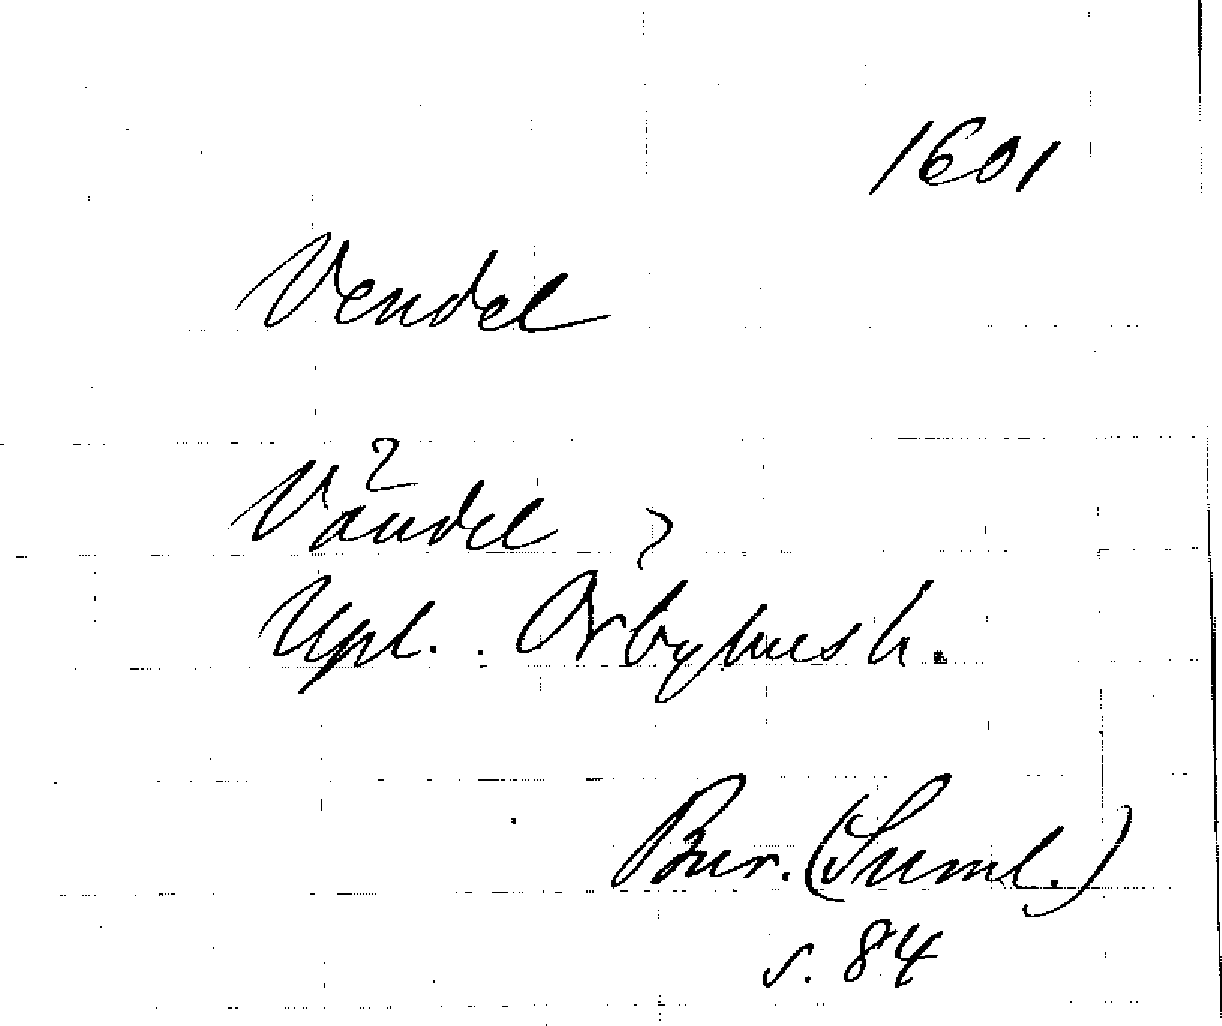 1601
Vendel
2
Vandel ?
Upl. Örbyhus h.
Bur. (Suml.)
s. 84